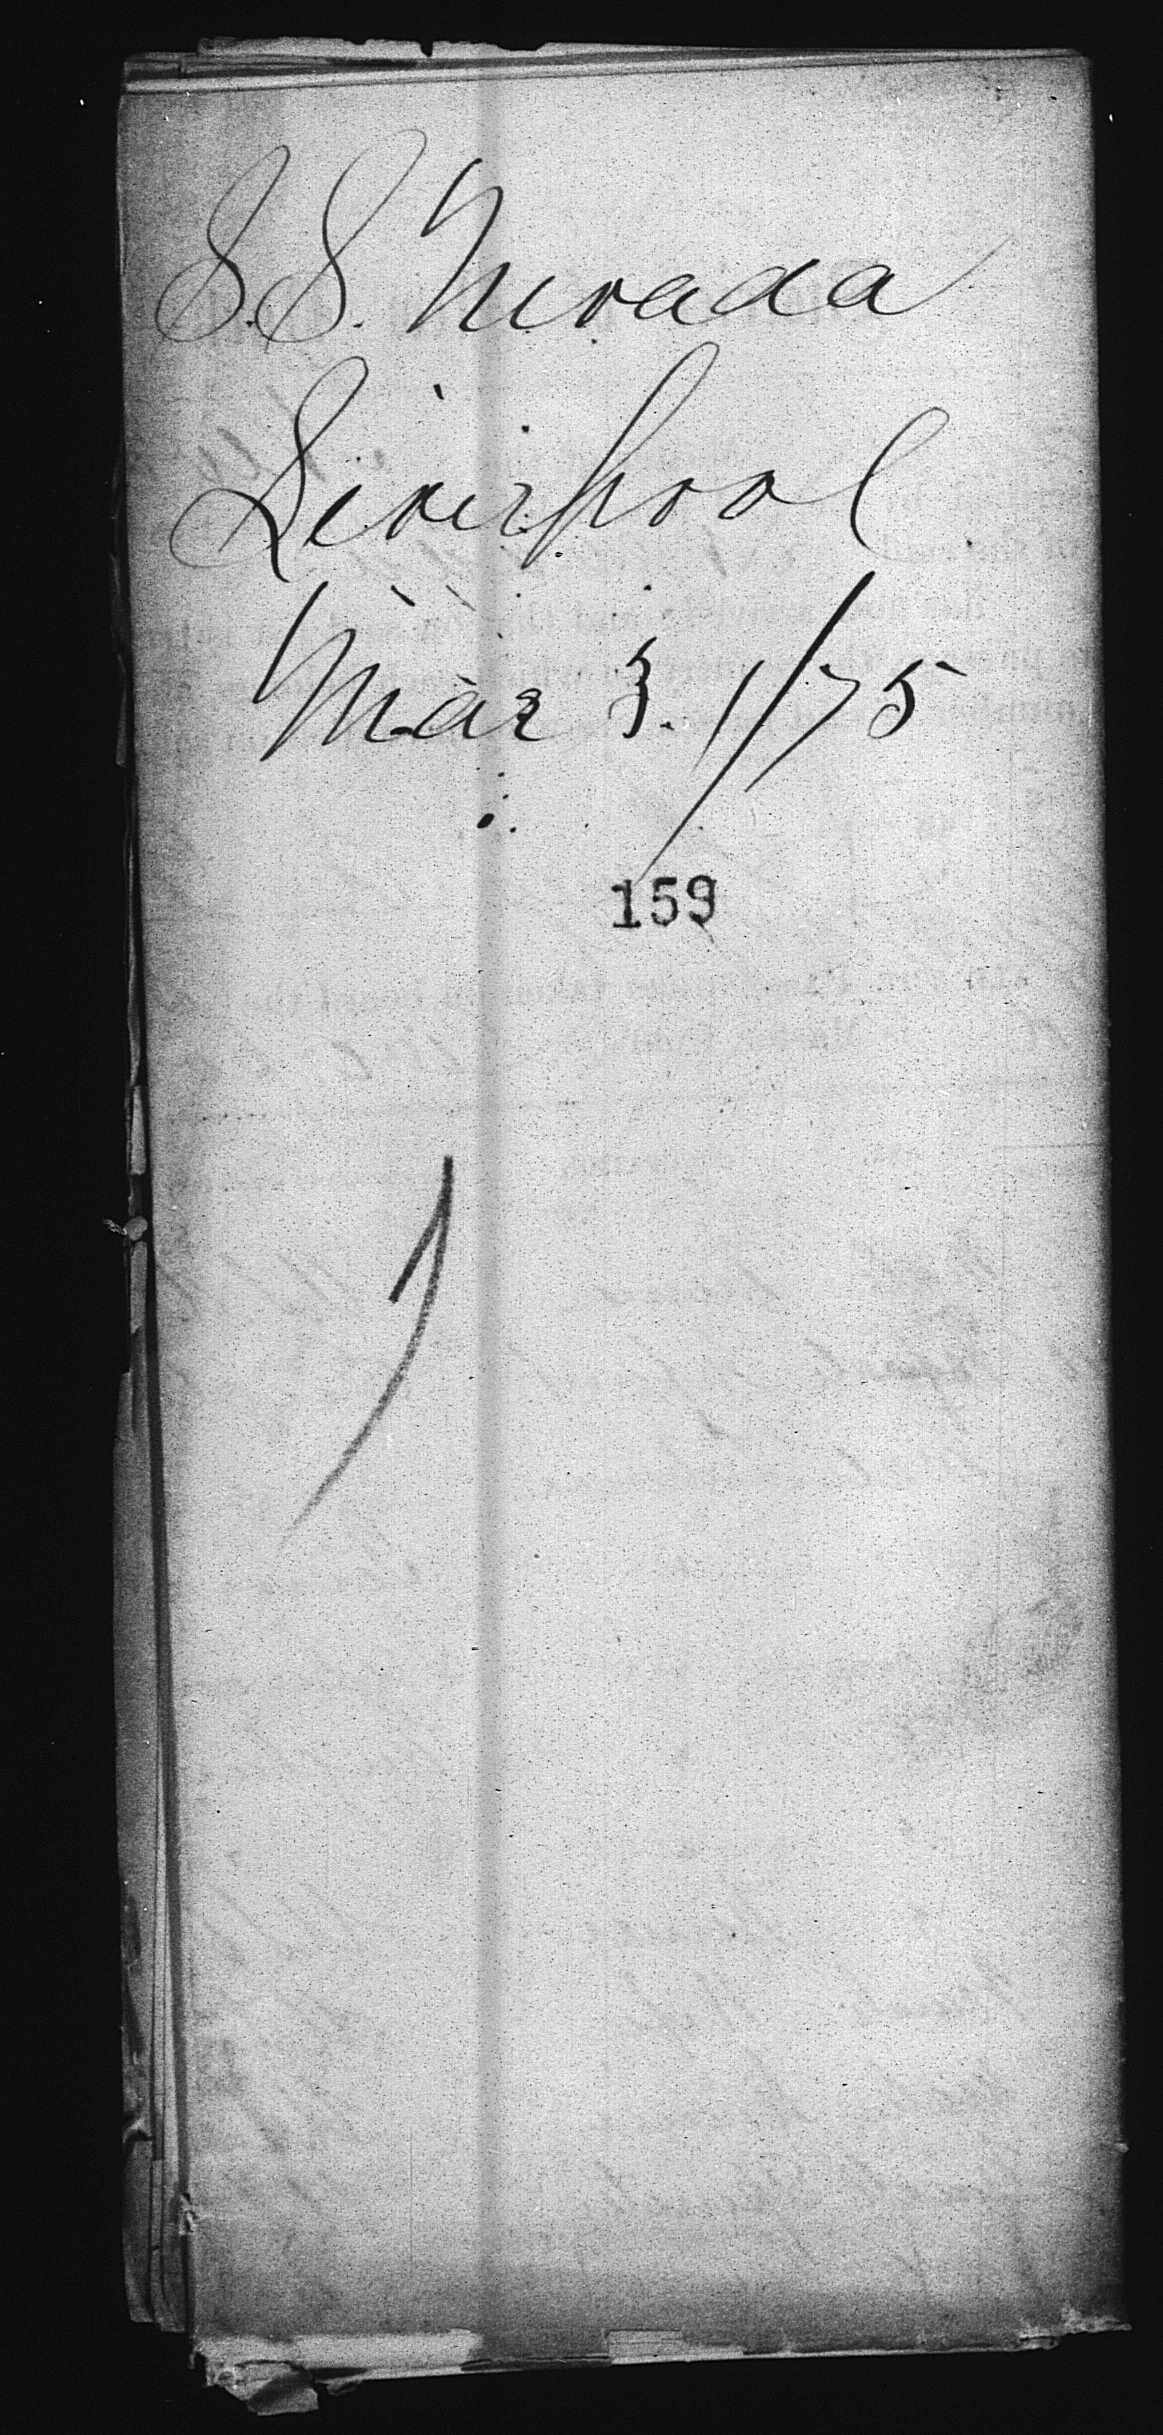 S.S. Nevada
Liverpool
Mar 3. 1/75
159
1